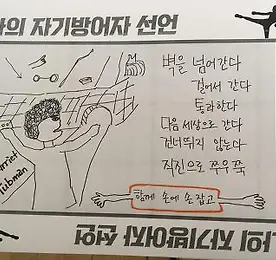 나의 자기방어자 선언
벽을 넘어간다
걸어서 간다
통과한다
다음 세상으로 간다
건너뛰지 않는다
직진으로 쭈우쭉
Harriet
Tubman
함께 손에 손 잡고
나의 자기방어자 선언